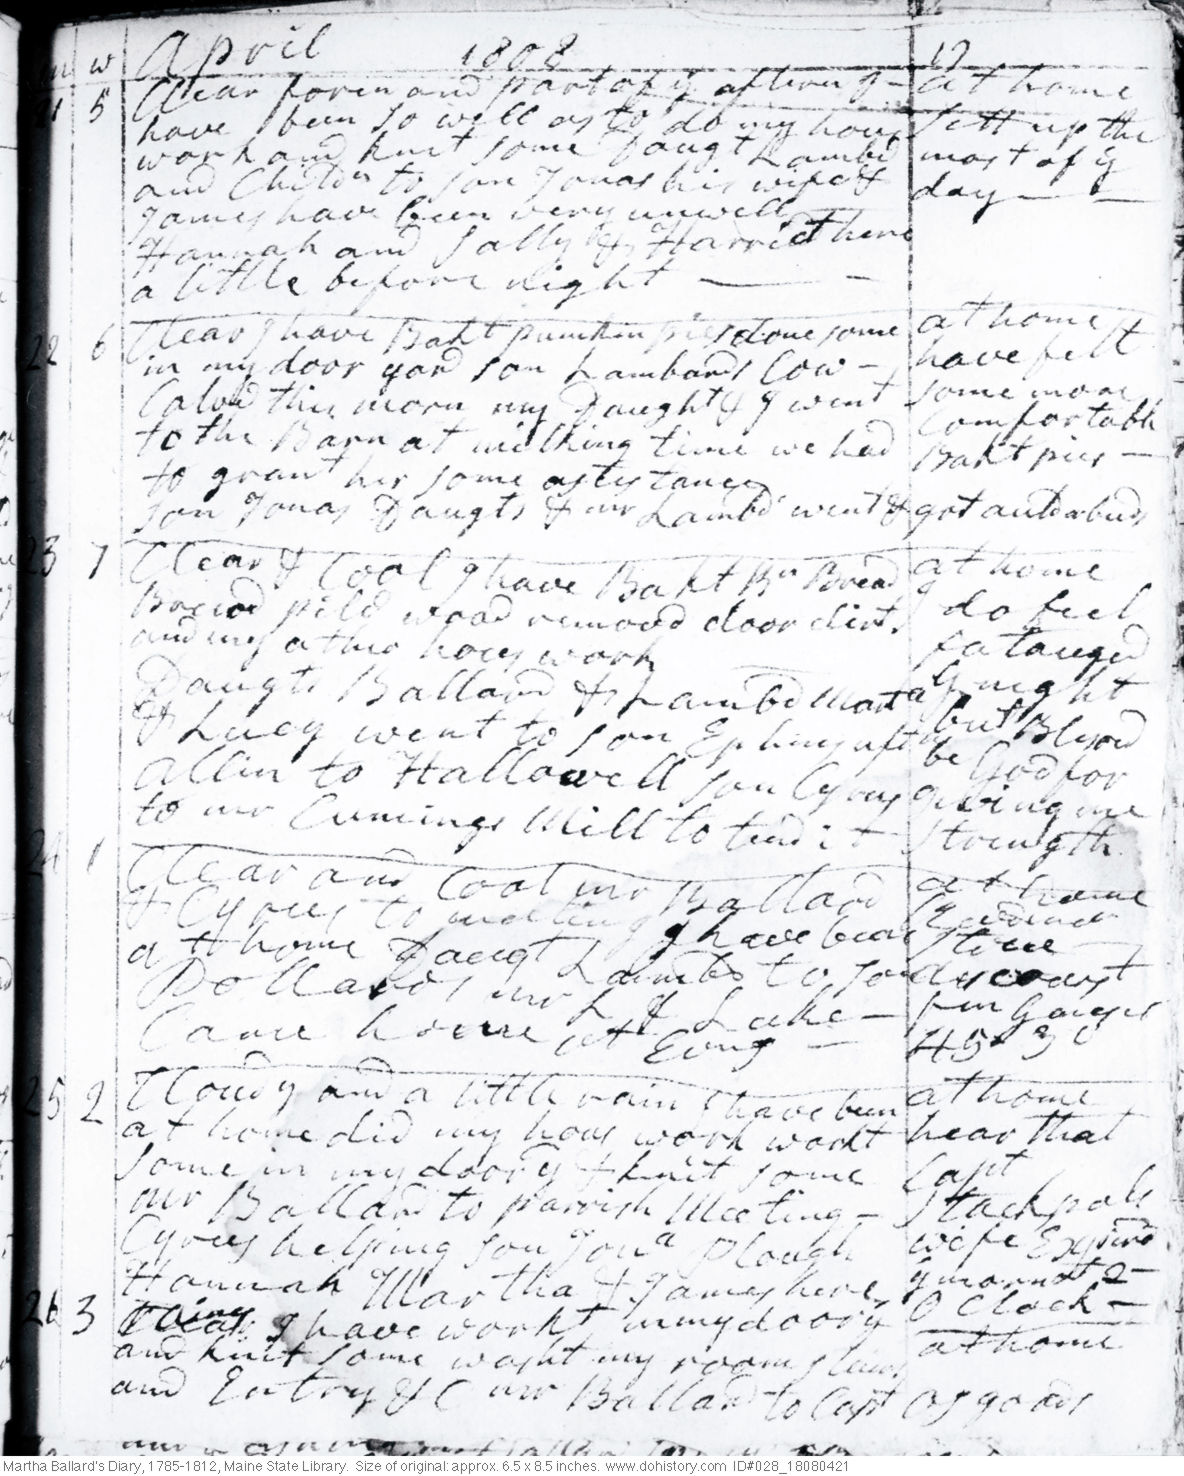 m w April 1808 17
21 5 Clear foren and part of ye aftern I at home
have been so well as to do my hous Sett up the
work and knit some Daugt Lambd most of ye
and Childn to son Jonas his wife & day
James have been very unwell
Hannah and Sally & Harriet here
a little before night
22 6 Clear I have Bakt pumkin pies done some at home I
in my door yard son Lambards Cow have felt
Calvd this morn my Daught & I went some more
to the Barn at milking time we had Comfortabl
to grant her some asistance Bakt pies
son Jonas Daugts & mr Lambd went &
23 7 Clear & Cool I have Bakt Bn Bread at home
Brewd pild wood removd door dirt I do feel
and my other hous work fatauged
Daugts Ballard & Lambd Marta at night
& Lucy went to son Ephms aftn but Blesed
Allin to Hallowell son Cyrus be God for
to mr Cumings Mill to tend it giving me
strength
24 1 Clear and Cool mr Ballard at home
& Cyrus to meeting I have been
at home Daugt Lambd to son
Pollards mr L & Luke
Came home at Evng 45 30
25 2 Cloudy and a little rain I have been at home
at home did my hous work workt hear that
some in my door y & knit some Capt
mr Ballard to parrish Meeting Stackpols
Cyrus helping son Jona Plough wife Expird
Hannah Martha & James here ys morn at 2
O Clock
26 3 I have workt in my door y at home
and knit some washt my room stairs
and Entry &C mr Ballard to Capt osgoods
Martha Ballard's Diary, 1785-1812, Maine State Library. Size of original: approx. 6.5 x 8.5 inches. www.dohistory.com ID#028_18080421